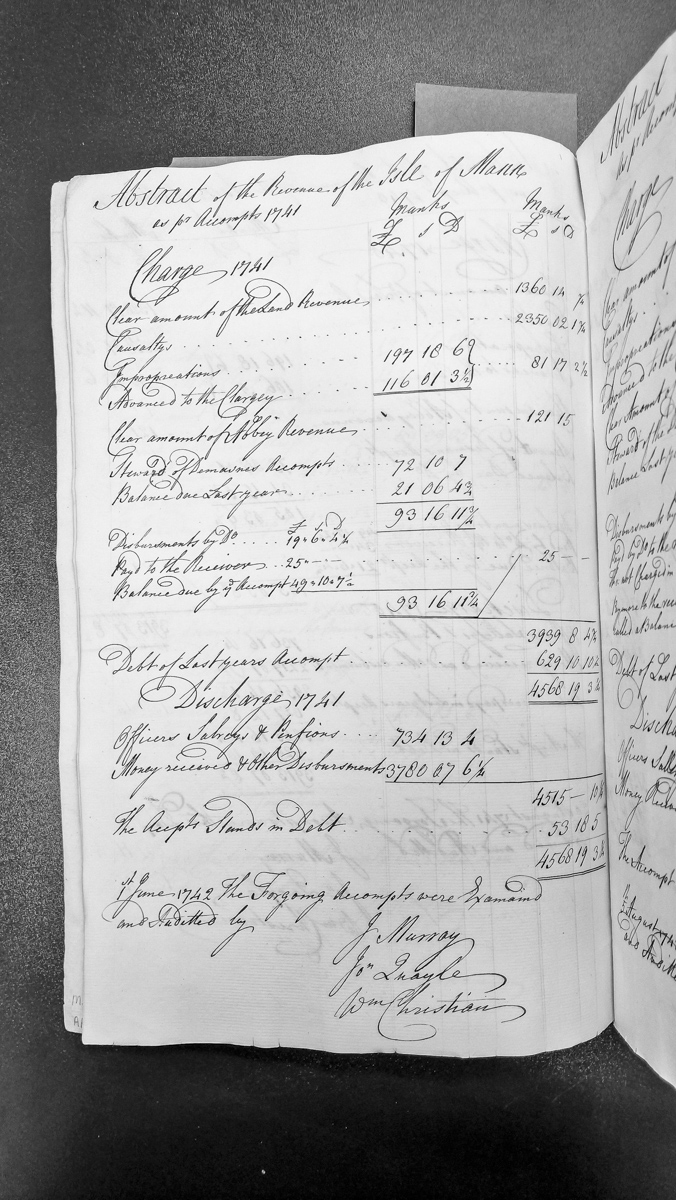 Abstract of the Revenue of the Isle of Mann
as pr Accompts 1741
Manks Manks
£ s D £ s D
Charge 1741
Clear amount of the Land Revenue 1360 14 ¼
Causaltys 2350 02 1¼
Impropreations 197 18 6
Advanced to the Clargey 116 01 3½ 81 17 2½
Clear amount of Abbey Revenue 121 15
Steward of Demasnes Accompts 72 10 7
Balance due Last year 21 06 4¾
93 16 11¾
Disbursments by Do £ s D 19 " 6 " 4¼
Payd to the Receiver 25 " — 25 — —
Balance due by ys Accompt 49 " 10 " 7½
93 16 11¾
3939 8 4¼
Debt of Last years Accompt 629 10 10¾
Discharge 1741 4568 19 3¼
Officers Salreys & Pensions 734 13 4
Money received & other Disbursments 3780 07 6¼
4515 — 10¼
The Accpts Stands in Debt 53 18 5
4568 19 3¼
1st June 1742 The Forgoing Accompts were Examaind
and Auditted by
J Murray
Jon Quayle
Wm Christian
Abstract
as pr Accomp
Charge
Clear amount of
Causaltys
Impropreations
Advanced to the
Clear Amount
Steward of the
Balance Last year
Disbursments by
Payd by Do to the
Debt of Last
Discha
Officers Sall
Money Rece
The Accompt
August 174
and Aud